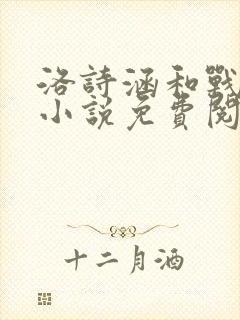 洛詩涵和戰
小說免費閱
十二月酒